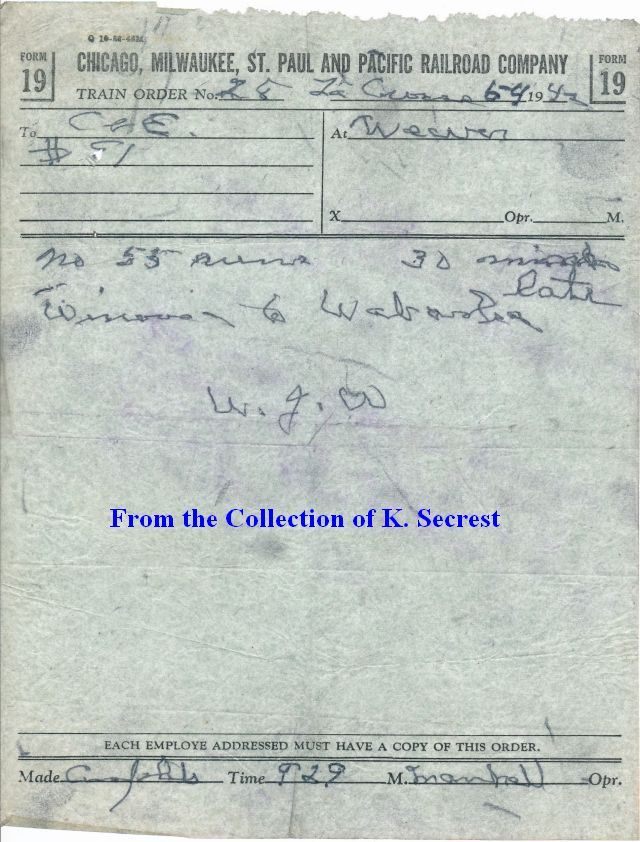 FORM 19
CHICAGO, MILWAUKEE, ST. PAUL AND PACIFIC RAILROAD COMPANY
FORM 19
TRAIN ORDER No. 28 La Crosse 6-4 1942
To C & E.
At Weaver
# 91
X Opr. M.
No 55 runs 30 mins late
Winona to Wabasha
W. J. W
From the Collection of K. Secrest
EACH EMPLOYE ADDRESSED MUST HAVE A COPY OF THIS ORDER.
Made Time 929 M. Opr.